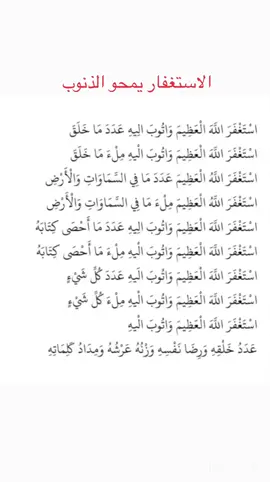 الاستغفار يمحو الذنوب
اسْتَغْفَرَ اللَّهَ الْعَظِيمَ وَاتُوبَ اليهِ عَدَدَ مَا خَلَقَ
اسْتَغْفَرَ اللَّهَ الْعَظِيمَ وَاتُوبَ الْيهِ مِلْءَ مَا خَلَقَ
اسْتَغْفَرَ اللَّهُ الْعَظِيمَ عَدَدَ مَا فِي السَّمَاوَاتِ وَالْأَرْضِ
اسْتَغْفَرَ اللَّهُ الْعَظِيمَ مِلْءَ مَا فِي السَّمَاوَاتِ وَالْأَرْضِ
اسْتَغْفَرَ اللَّهَ الْعَظِيمَ وَاتُوبَ الْيهِ عَدَدَ مَا أَحْصَى كِتَابَهُ
اسْتَغْفَرَ اللَّهَ الْعَظِيمَ وَاتُوبَ الْيهِ مِلْءَ مَا أَحْصَى كِتَابَهُ
اسْتَغْفَرَ اللَّهَ الْعَظِيمَ وَاتُوبَ اليهِ عَدَدَ كُلِّ شَيْءٍ
اسْتَغْفَرَ اللَّهَ الْعَظِيمَ وَاتُوبَ الْيهِ مِلْءَ كُلِّ شَيْءٍ
اسْتَغْفَرَ اللَّهَ الْعَظِيمَ وَاتُوبَ الْيهِ
عَدَدُ خَلْقِهِ وَرِضَا نَفْسِهِ وَزْنُهُ عَرْشُهُ وَمِدَادُ كَلِمَاتِهِ